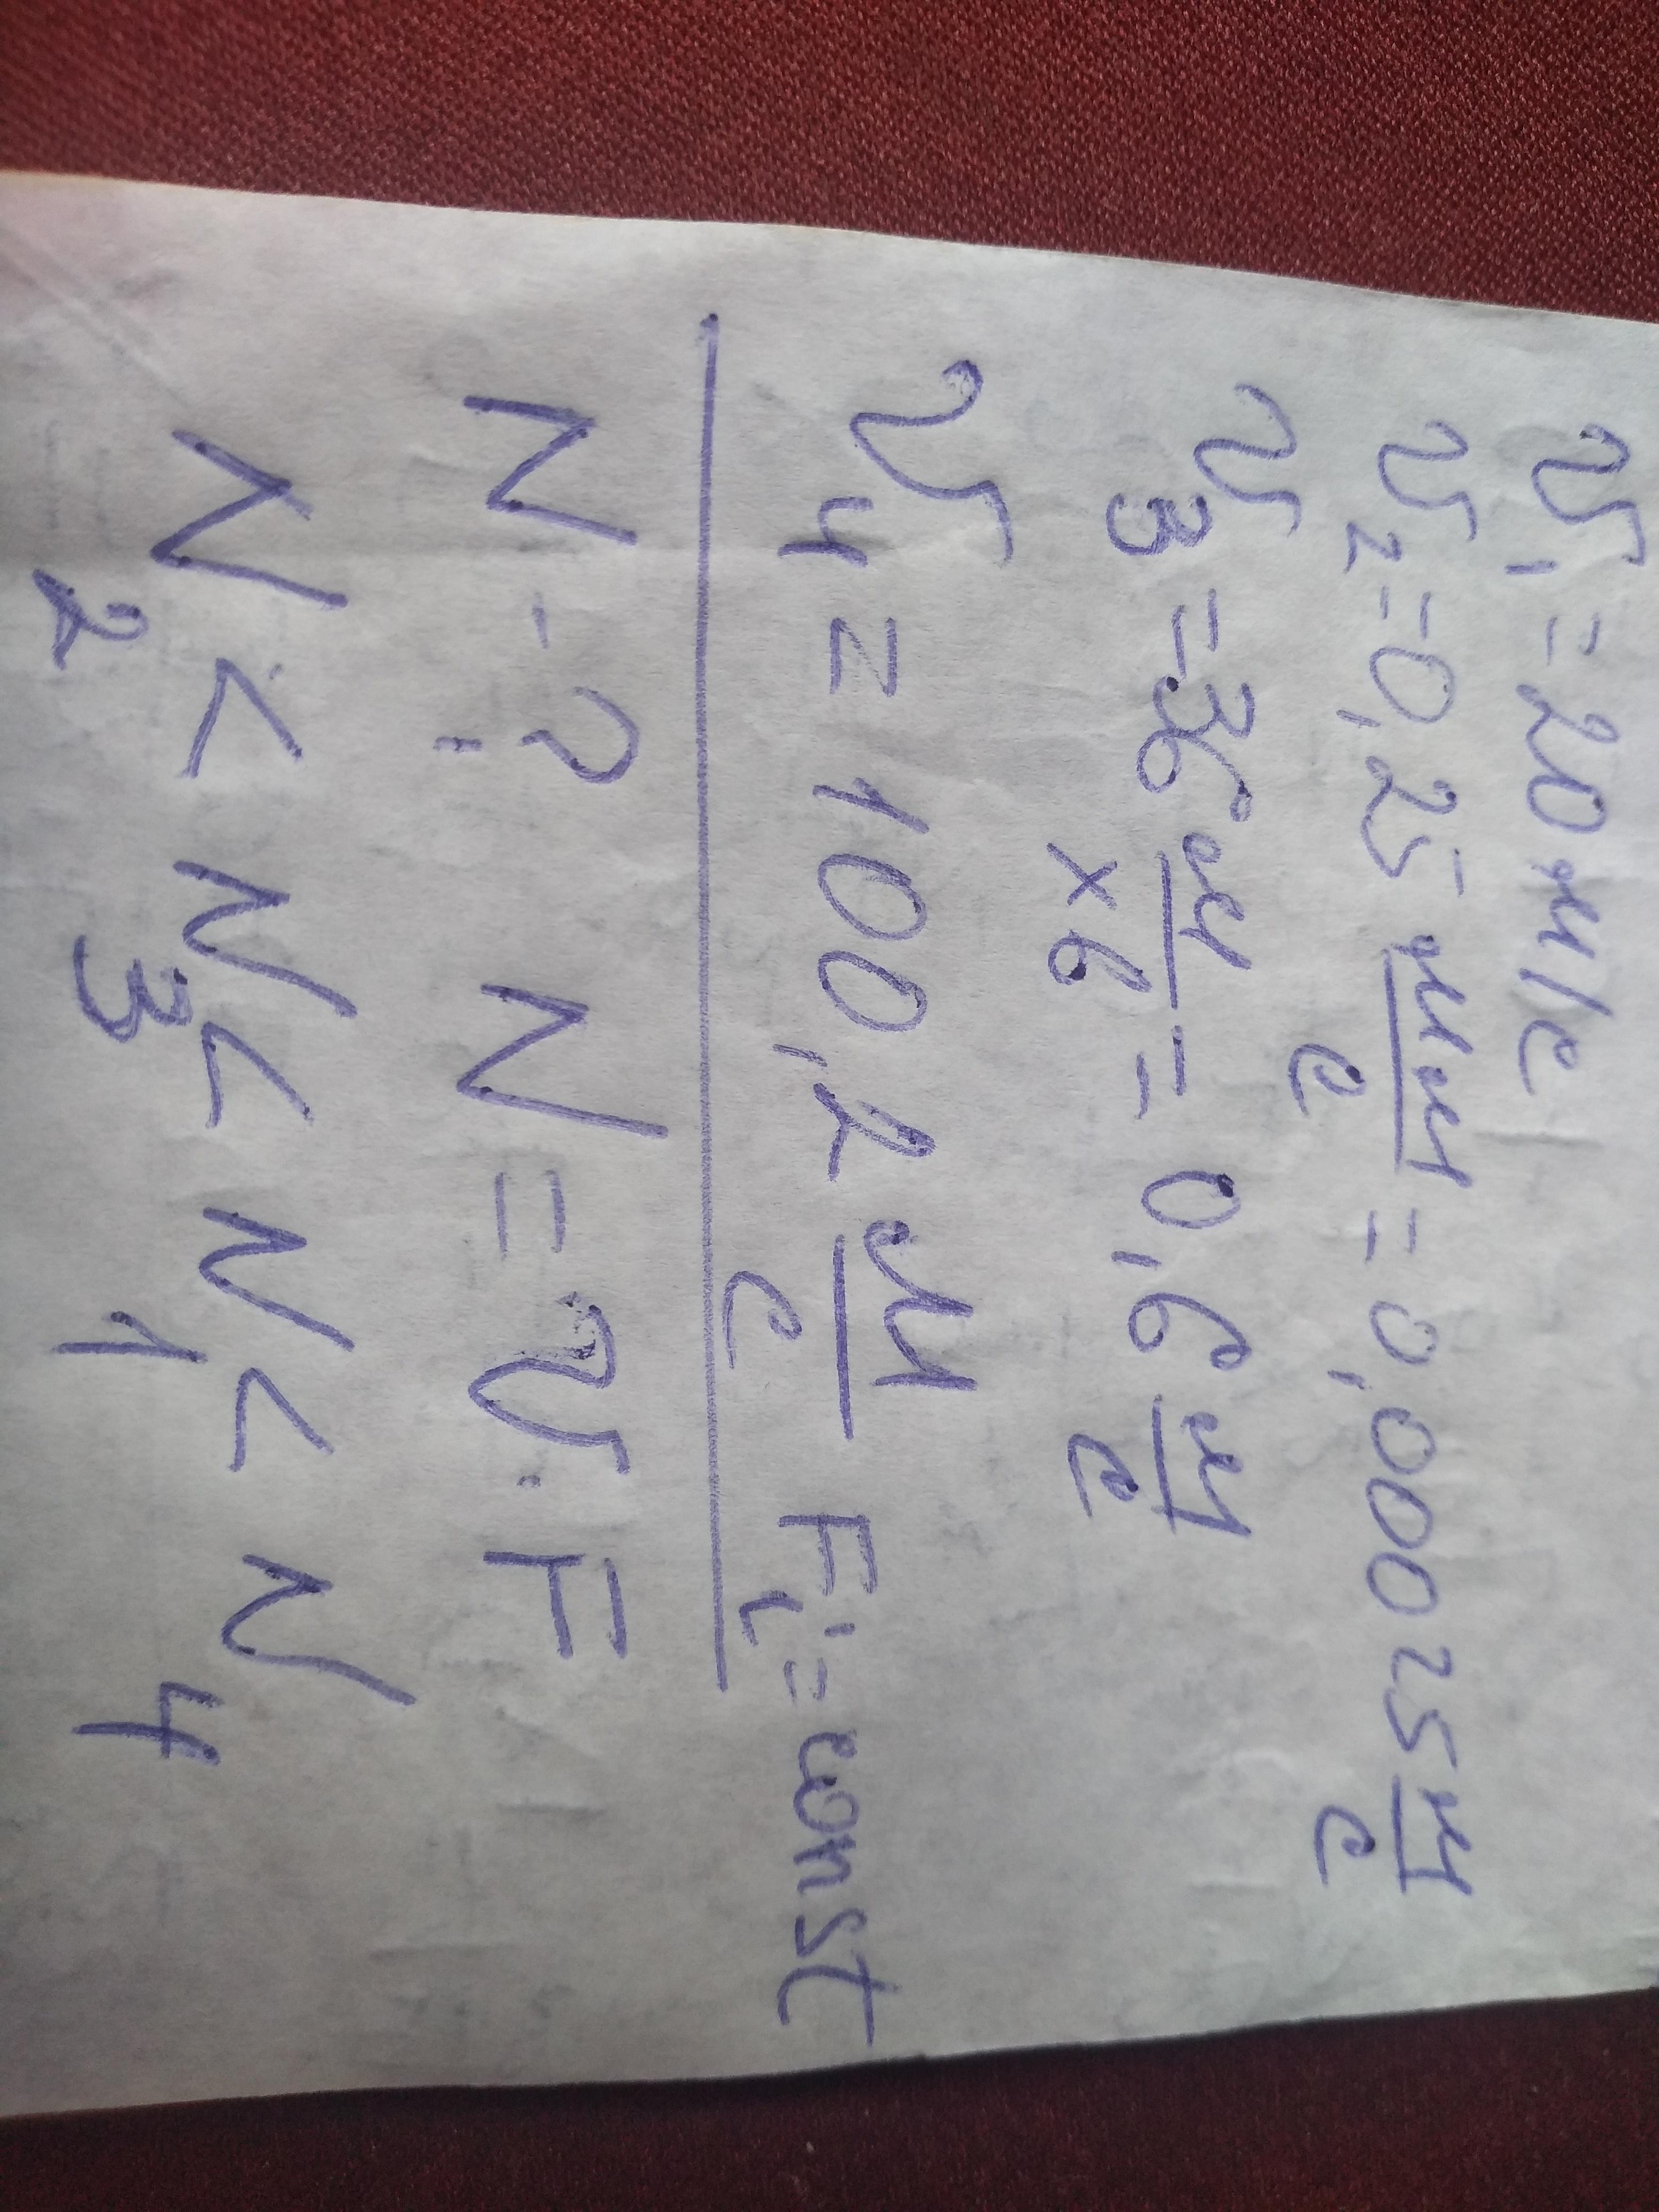 v₁ = 20 м/с
v₂ = 0,25 мм/с = 0,00025 м/с
v₃ = 36 м/х6 = 0,6 м/с
v₄ = 100,2 м/с Fᵢ = const
N - ? N = v · F
N₂ < N₃ < N₁ < N₄